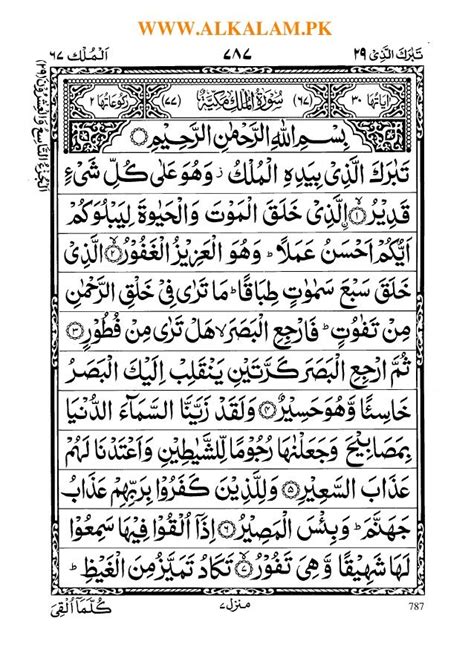 WWW.ALKALAM.PK
تَبٰرَكَ الَّذِىْ ٢٩
٧٨٧
اَلْمُلْك ٦٧
اٰيَاتُهَا ٣٠
(٦٧) سُوْرَةُ الْمُلْكِ مَكِّيَّةٌ (٧٧)
رُكُوْعَاتُهَا ٢
بِسْمِ اللهِ الرَّحْمٰنِ الرَّحِيْمِ
تَبٰرَكَ الَّذِىْ بِيَدِهِ الْمُلْكُ ز وَهُوَ عَلٰى كُلِّ شَىْءٍ
قَدِيْرُ ۨ ﴿١﴾ الَّذِىْ خَلَقَ الْمَوْتَ وَالْحَيٰوةَ لِيَبْلُوَكُمْ
اَيُّكُمْ اَحْسَنُ عَمَلًا ؕ وَهُوَ الْعَزِيْزُ الْغَفُوْرُ ﴿٢﴾ الَّذِىْ
خَلَقَ سَبْعَ سَمٰوٰتٍ طِبَاقًا ؕ مَا تَرٰى فِىْ خَلْقِ الرَّحْمٰنِ
مِنْ تَفٰوُتٍ ؕ فَارْجِعِ الْبَصَرَ ۙ هَلْ تَرٰى مِنْ فُطُوْرٍ ﴿٣﴾
ثُمَّ ارْجِعِ الْبَصَرَ كَرَّتَيْنِ يَنْقَلِبْ اِلَيْكَ الْبَصَرُ
خَاسِئًا وَّهُوَ حَسِيْرٌ ﴿٤﴾ وَلَقَدْ زَيَّنَّا السَّمَآءَ الدُّنْيَا
بِمَصَابِيْحَ وَجَعَلْنٰهَا رُجُوْمًا لِّلشَّيٰطِيْنِ وَاَعْتَدْنَا لَهُمْ
عَذَابَ السَّعِيْرِ ﴿٥﴾ وَلِلَّذِيْنَ كَفَرُوْا بِرَبِّهِمْ عَذَابُ
جَهَنَّمَ ؕ وَبِئْسَ الْمَصِيْرُ ﴿٦﴾ اِذَآ اُلْقُوْا فِيْهَا سَمِعُوْا
لَهَا شَهِيْقًا وَّهِىَ تَفُوْرُ ﴿٧﴾ تَكَادُ تَمَيَّزُ مِنَ الْغَيْظِ ؕ
كُلَّمَآ اُلْقِىَ
منزل ٧
787